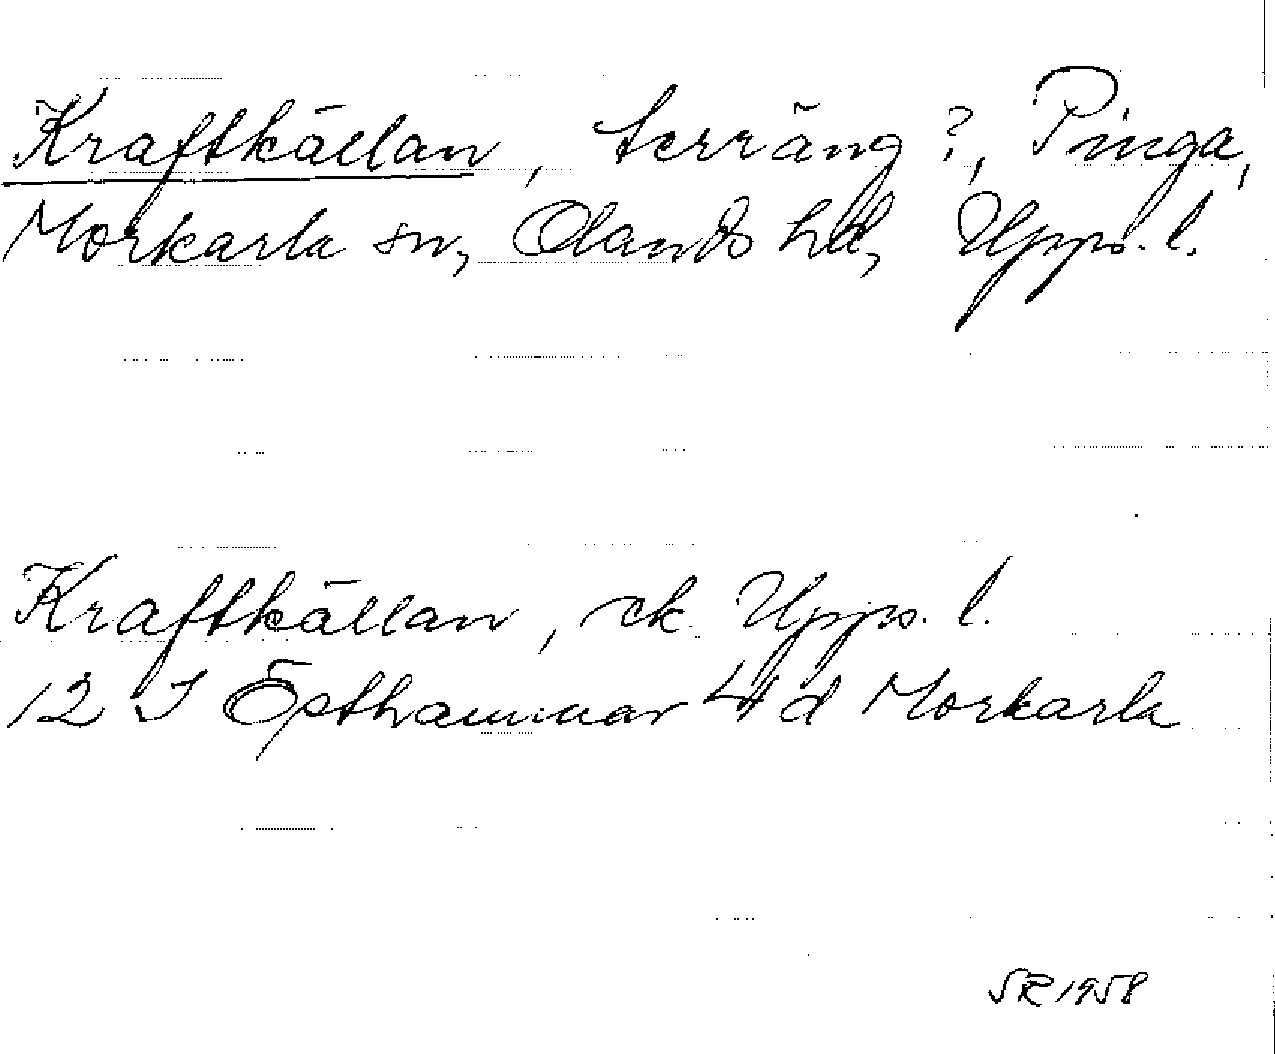 Kraftkällan, terräng?, Pinga,
Morkarla sn, Olands hd, Upps. l.
Kraftkällan, ek. Upps. l.
12 I Östhammar 4 d Morkarla
SR 1958